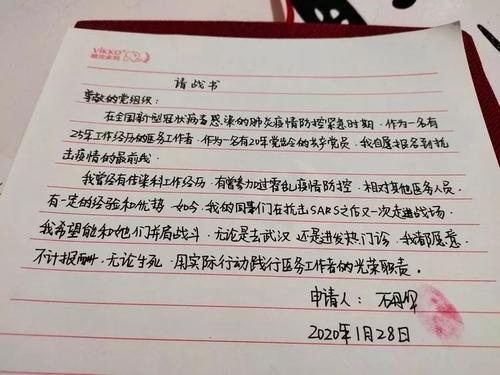 ViKKO
请战书
尊敬的党组织：
在全国新型冠状病毒感染的肺炎疫情防控紧急时期，作为一名有
25年工作经历的医务工作者，作为一名有20年党龄的共产党员，我自愿报名到抗
击疫情的最前线。
我曾经有传染科工作经历，有曾参加过霍乱疫情防控，相对其他医务人员，
有一定的经验和优势，如今，我的同事们在抗击SARS之后又一次走进战场，
我希望能和她们并肩战斗，无论是去武汉还是进发热门诊，我都愿意，
不计报酬，无论生死，用实际行动践行医务工作者的光荣职责。
申请人：石丹
2020年1月28日